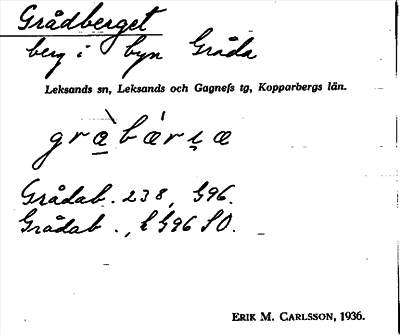 Grådberget
berg i byn Gråda
Leksands sn, Leksands och Gagnefs tg, Kopparbergs län.
græ̀bæ̀rıæ
Grådab. 238, §96.
Grådab., § 96 SO.
ERIK M. CARLSSON, 1936.